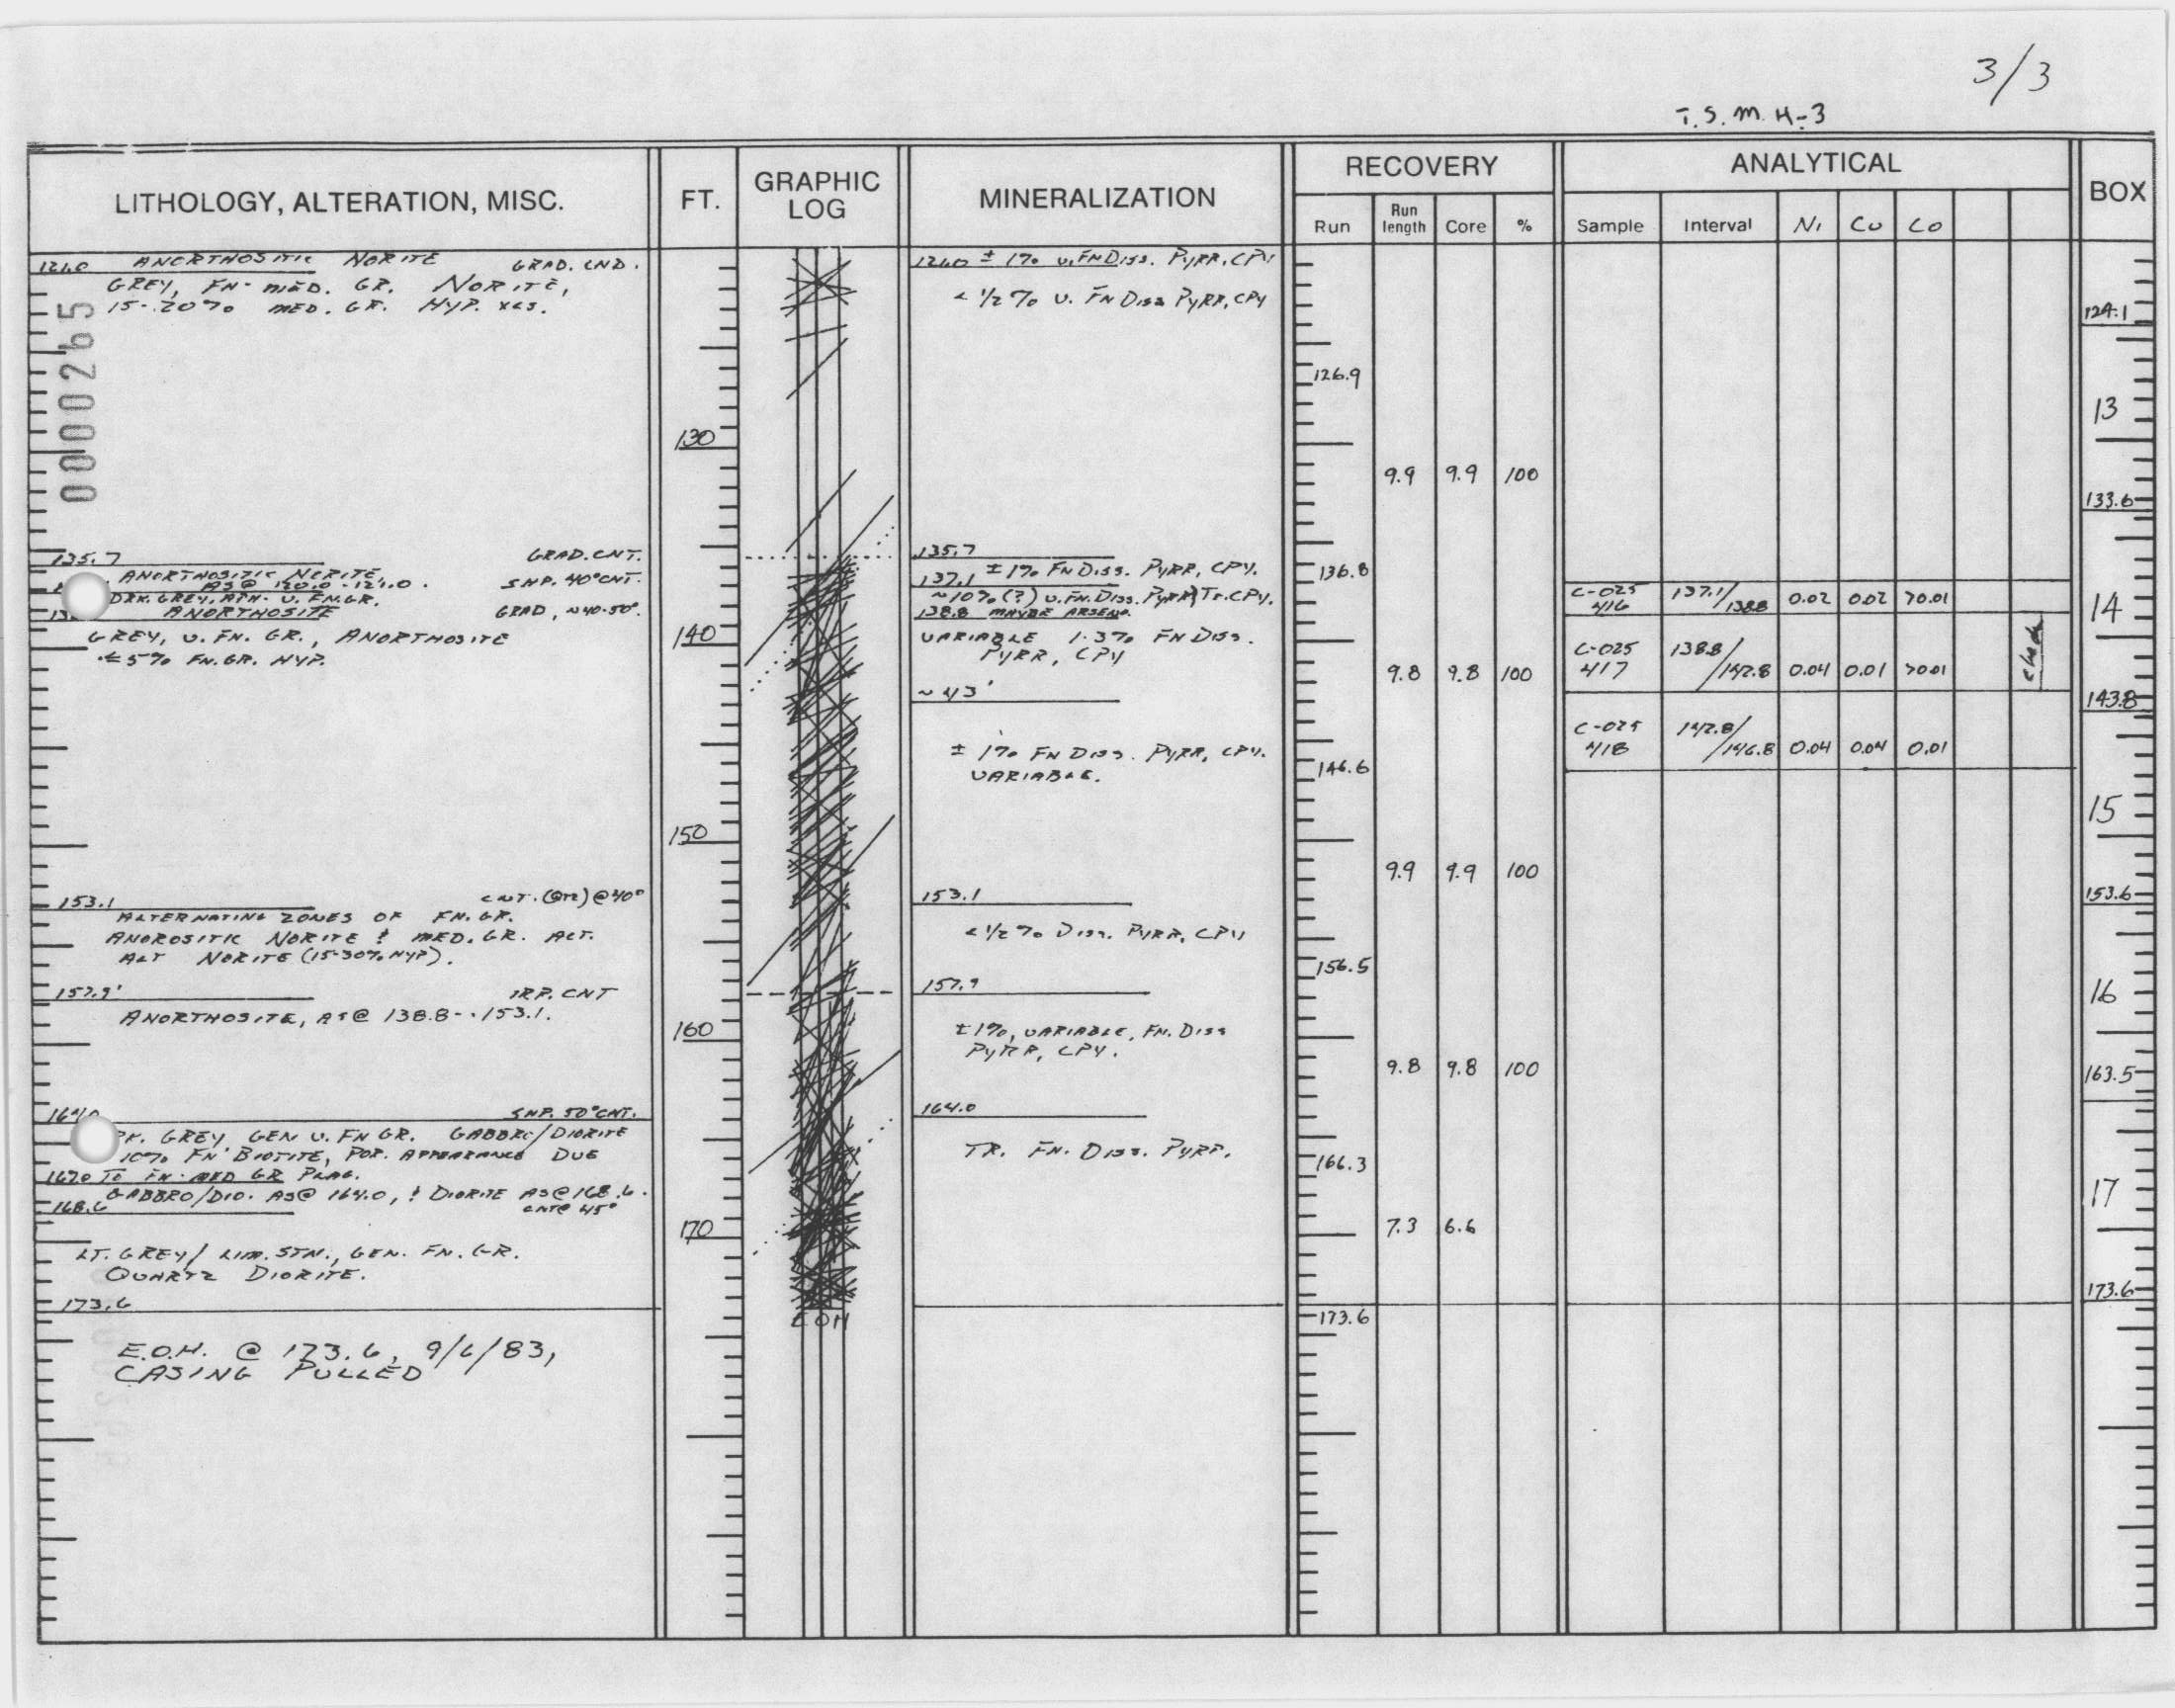 3/3
T.S.M.H-3
LITHOLOGY, ALTERATION, MISC.
FT.
GRAPHIC LOG
MINERALIZATION
RECOVERY
Run
Run length
Core
%
ANALYTICAL
Sample
Interval
Ni
Cu
Co
BOX
0000265
ANORTHOSITIC NORITE
GREY, FN-MED. GR. NORITE,
15-20% MED. GR. HYP. XLS.
135.7 GRAD. CNT.
ANORTHOSITIC NORITE
AS @ 120.0-124.0. SHP. 40° CNT.
DRK. GREY, APH- V. FN. GR.
ANORTHOSITE GRAD, ~40-50°.
GREY, V. FN. GR., ANORTHOSITE
≤5% FN. GR. HYP.
153.1 CNT. @40°
ALTERNATING ZONES OF FN. GR.
ANOROSITIC NORITE & MED. GR. ALT.
ALT NORITE (15-30% HYP).
157.9' IRR. CNT
ANORTHOSITE, AS @ 138.8--153.1.
SHP. 50° CNT.
GREY GEN V. FN GR. GABBRO/DIORITE
10% FN BIOTITE, POR. APPEARANCE DUE
167.0 TO FN-MED GR PLAG.
GABBRO/DIO. AS @ 164.0, & DIORITE AS @ 168.6.
168.6 CNT@ 45°
LT. GREY/ LIM. STN., GEN. FN. GR.
QUARTZ DIORITE.
173.6
E.O.H. @ 173.6, 9/6/83,
CASING PULLED
130
140
150
160
170
EOH
± 1% V. FN DISS. PYRR, CPY
< 1/2% V. FN DISS PYRR, CPY
135.7
± 1% FN DISS. PYRR, CPY.
137.1
~10% (?) V. FN. DISS. PYRR, TR. CPY.
138.8 MAYBE ARSENO.
VARIABLE 1-3% FN DISS.
PYRR, CPY
~43'
± 1% FN DISS. PYRR, CPY.
VARIABLE.
153.1
< 1/2% DISS. PYRR, CPY
157.9
±1%, VARIABLE, FN. DISS
PYRR, CPY.
164.0
TR. FN. DISS. PYRR.
126.9
9.9 9.9 100
136.8
9.8 9.8 100
146.6
9.9 9.9 100
156.5
9.8 9.8 100
166.3
7.3 6.6
173.6
C-025 416 137.1/138.8 0.02 0.02 >0.01
C-025 417 138.8/142.8 0.04 0.01 >0.01
check
C-025 418 142.8/146.8 0.04 0.04 0.01
124.1
13
133.6
14
143.8
15
153.6
16
163.5
17
173.6